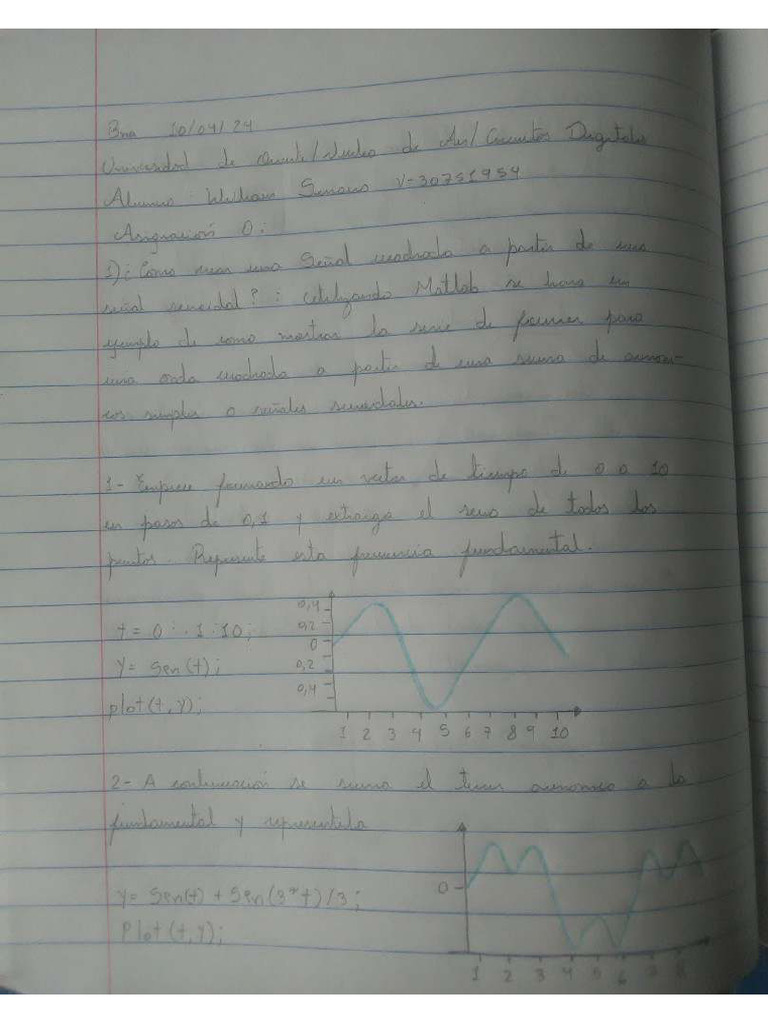 10/04/24
Universidad de Oriente/Nucleo de / Circuitos Digitales
Alumno: William Serrano V-30751954
Asignación 0:
1) ¿Como crear una Señal cuadrada a partir de una
señal senoidal? : Utilizando Matlab se hara un
ejemplo de como mostrar la serie de fourier para
una onda cuadrada a partir de una suma de armoni-
cos simples o señales senoidales.
1- Empiece formando un vector de tiempo de 0 a 10
en pasos de 0,1 y extraiga el seno de todos los
puntos. Represente esta frecuencia fundamental.
t = 0 : .1 : 10;
y = Sen(t);
plot(t, y);
0,4
0,2
0
0,2
0,4
1 2 3 4 5 6 7 8 9 10
2- A continuación se suma el tercer armonico a la
fundamental y representela
y = Sen(t) + Sen(3*t)/3;
Plot(t,y);
0
1 2 3 4 5 6 7 8